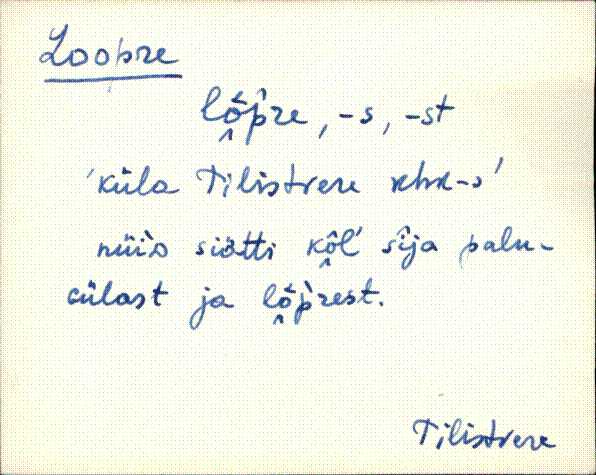 Loopre
lo̭̽p̂re, -s, -st
'küla Tilistvere khk-s'
nüiò siätti kô̭l' sîja palu-
cülast ja lo̭̽p̀rest.
Tilistvere